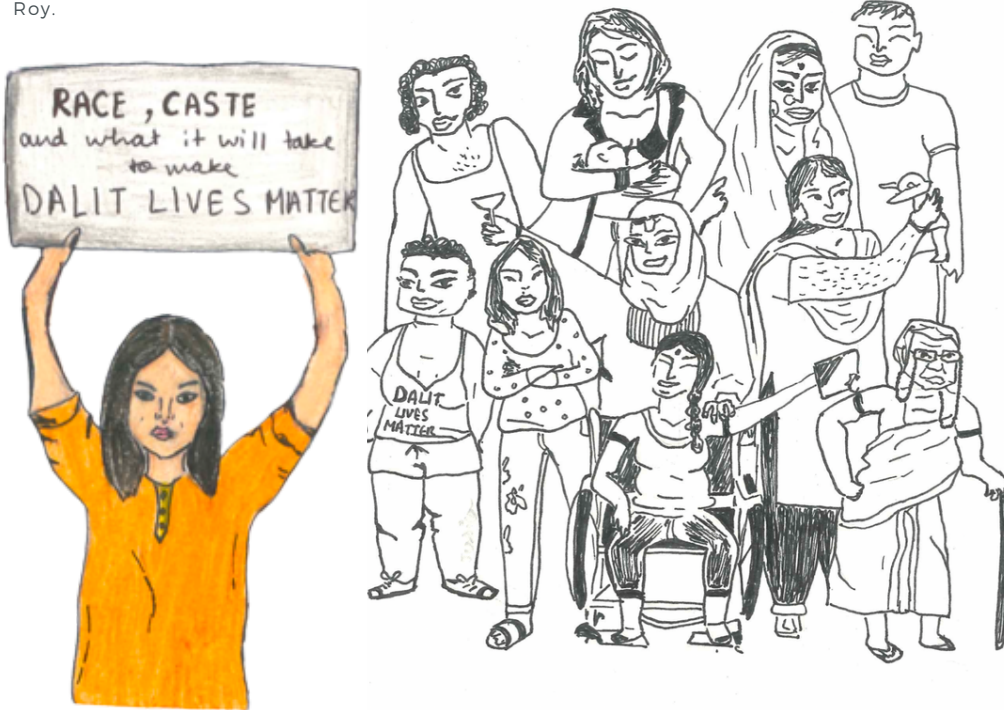 Roy.
RACE, CASTE
and what it will take
to make
DALIT LIVES MATTER
DALIT
LIVES
MATTER